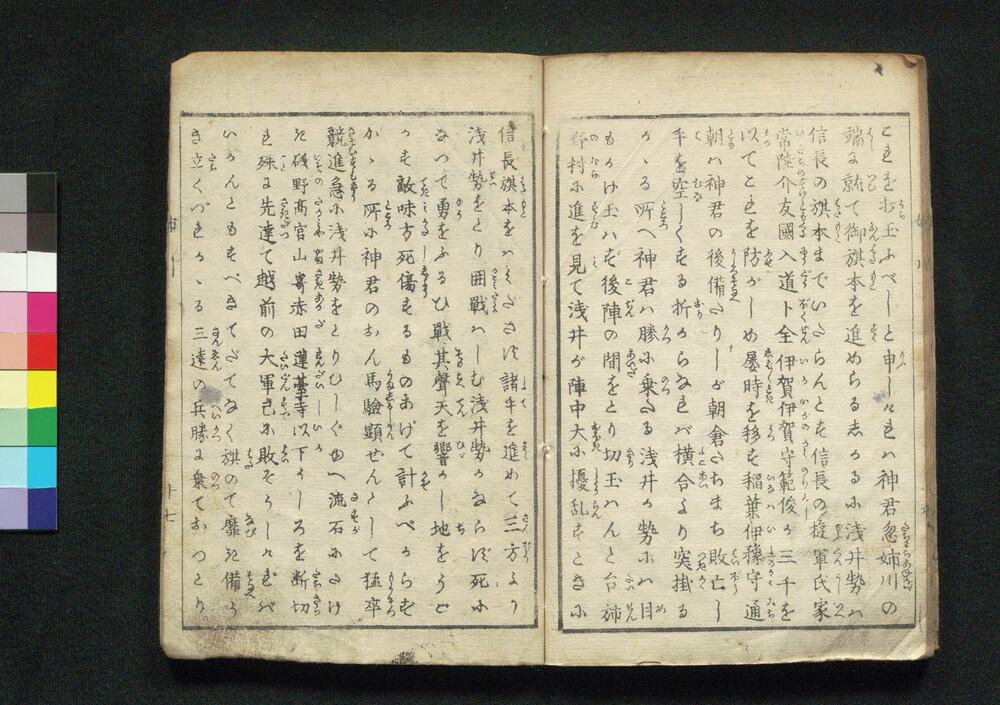 これを打玉ふべしと申しければ神君忽姉川の
端に就て御旗本を進めらるしかるに浅井勢は
信長の旗本までいたらんとす信長の従軍氏家
常陸介友國入道卜全伊賀伊賀守範俊が三千を
以てこれを防がしめ屡時を移す稲葉伊豫守通
朝は神君の後備たりしが朝倉たちまち敗亡し
手を空しくする折からなれば横合より突掛る
かゝる所へ神君は勝に乗たる浅井が勢には目
もかけ玉はず後陣の間をとり切玉はんと台姉
野村に進を見て浅井が陣中大に擾乱すときに
信長旗本をはじめさしも諸手を進めて三方より
浅井勢をとり囲戦はしむ浅井勢かならず死に
なつて勇をふるひ戦其聲天を響かし地をうご
かす敵味方死傷するものあげて計ふべからず
かゝる所に神君のおん馬驗顕ぜんとして猛卒
競進急に浅井勢をとりひしぐゆへ流石にたけ
き磯野高宮山崎赤田蓮臺寺以下うしろを断切
れ殊に先達て越前の大軍已に敗ぞうしければ
いかんともすべきてだてなく旗のて靡き備う
き立くづれかゝる三遠の兵勝に乗ておつとり
十七